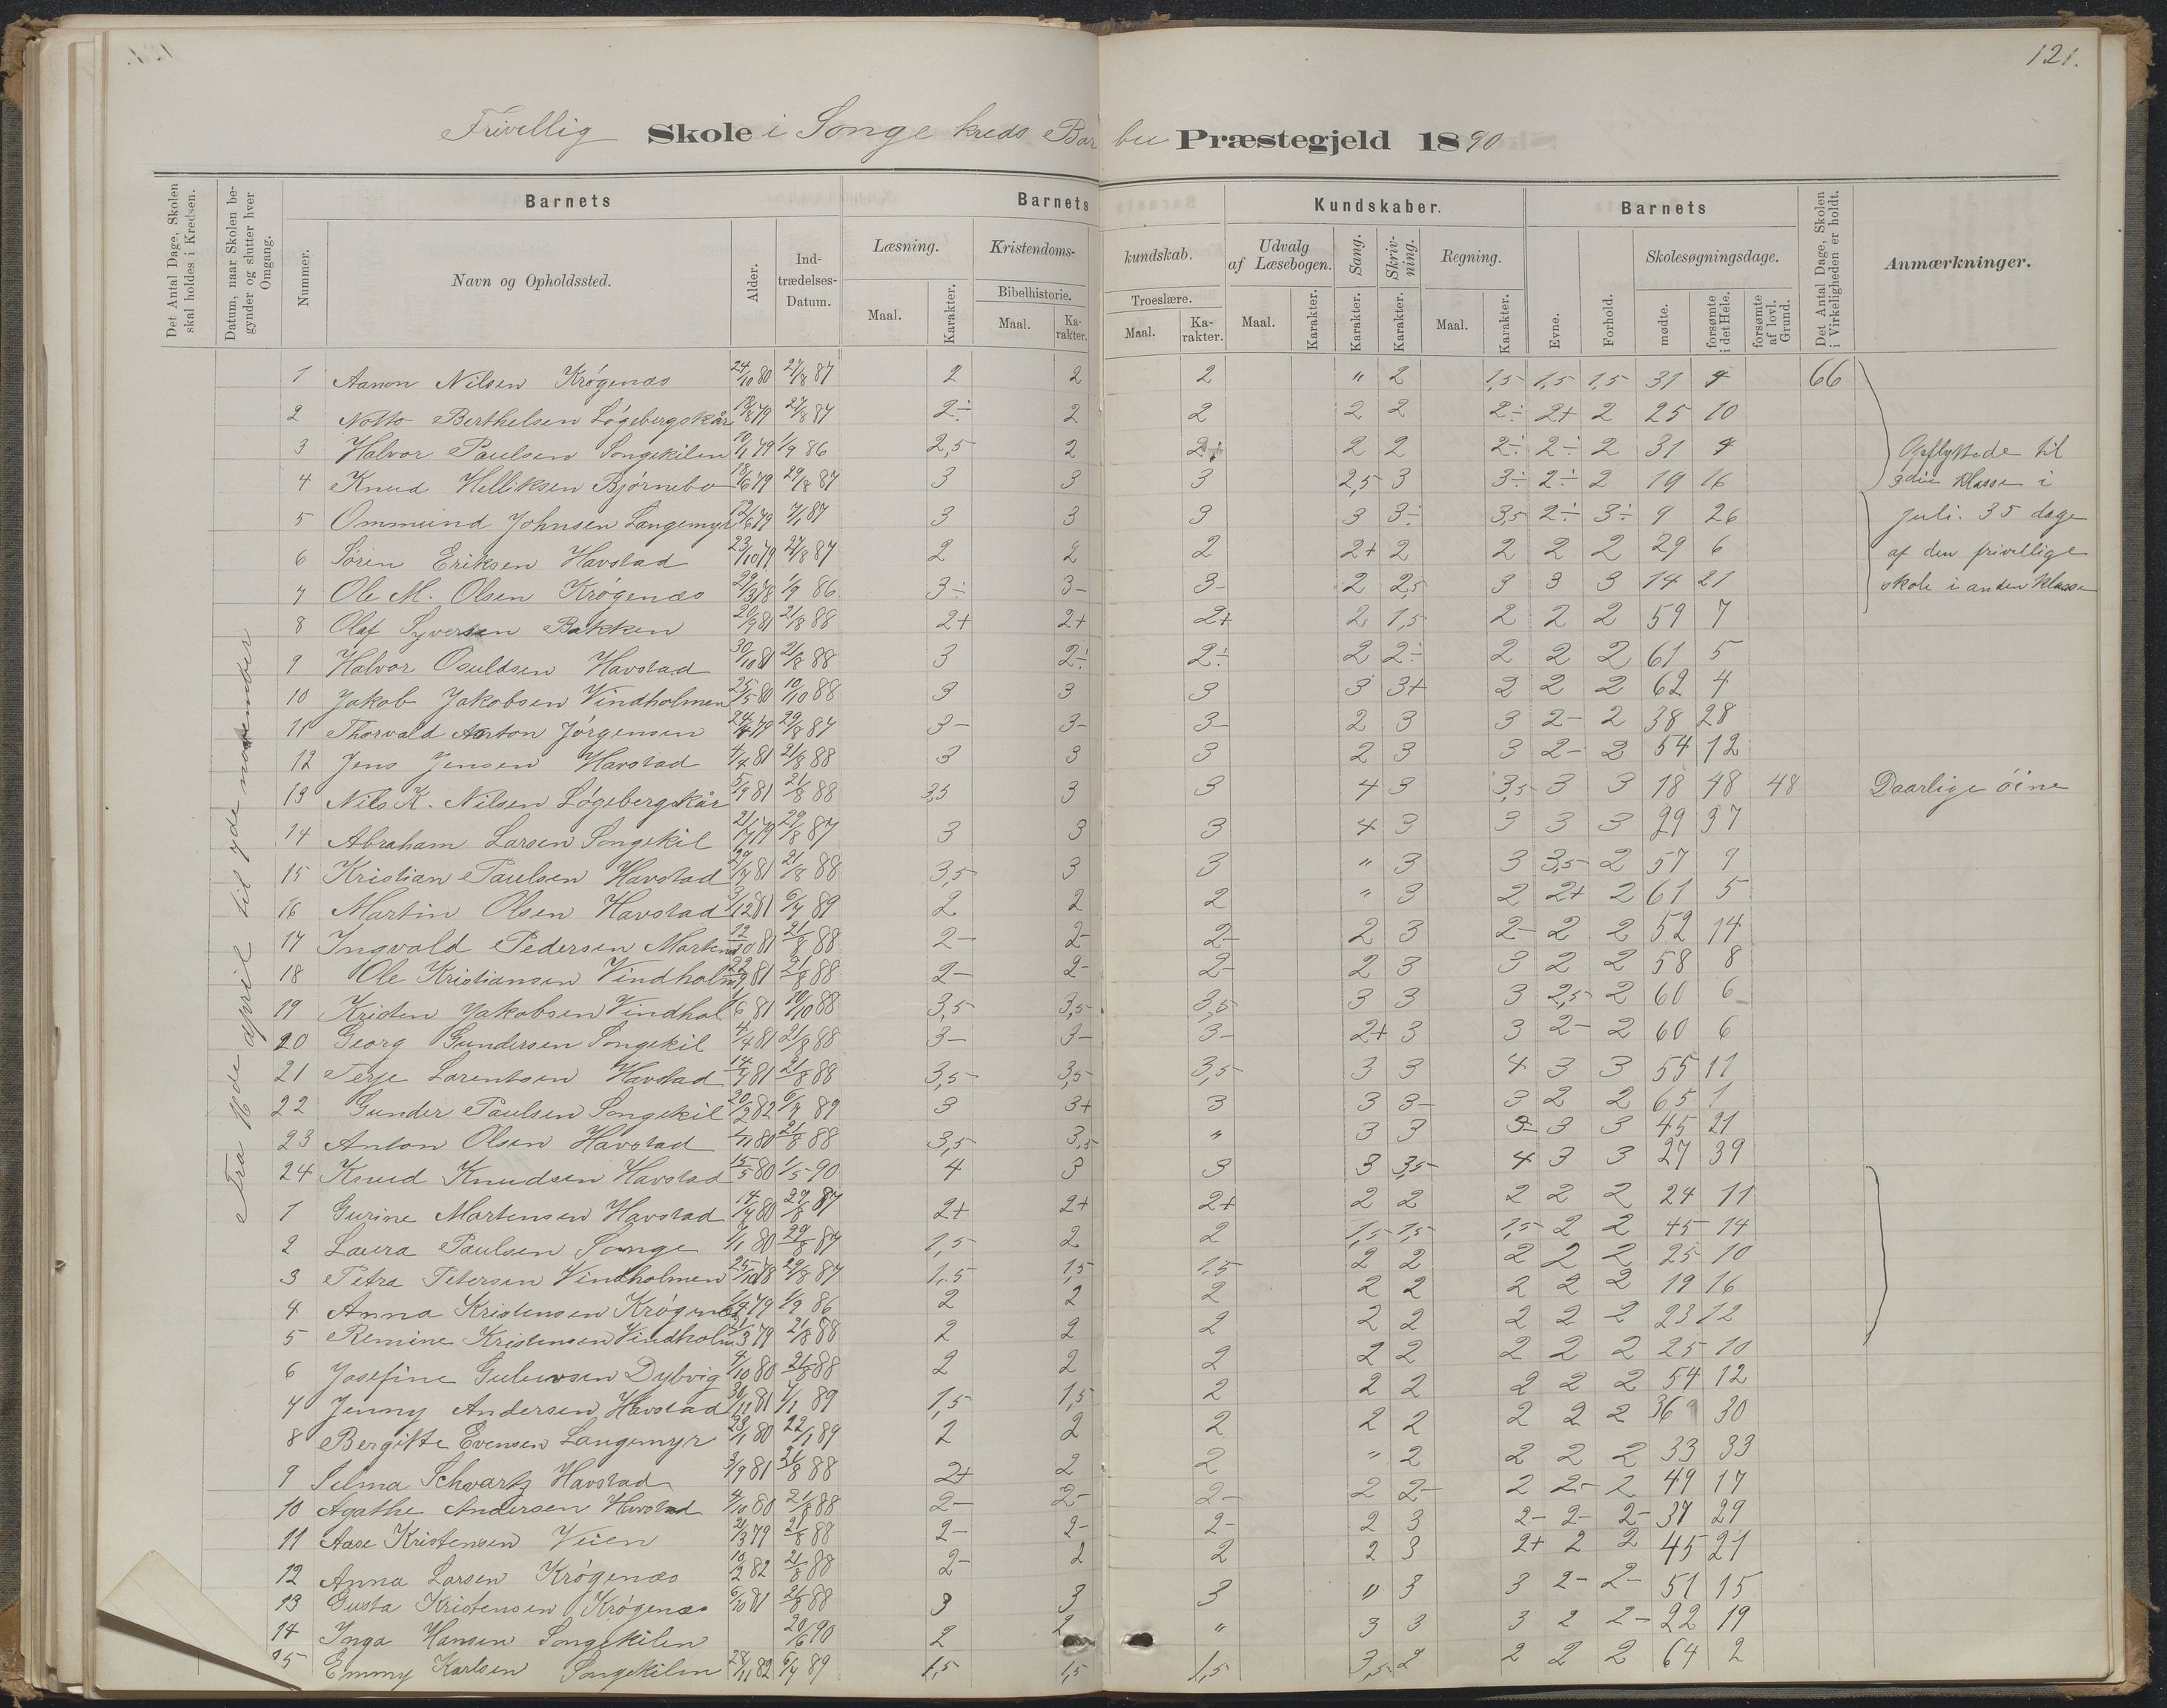 121.
Frivillig Skole i Songe kreds Barbu Præstegjeld 1890
Det Antal Dage, Skolen skal holdes i Kredsen.
Datum, naar Skolen begynder og slutter hver Omgang.
Barnets
Nummer.
Navn og Opholdssted.
Alder.
Indtrædelses-Datum.
Barnets Kundskaber.
Læsning.
Maal. Karakter.
Kristendoms-kundskab.
Bibelhistorie.
Maal. Karakter.
Troeslære.
Maal. Karakter.
Udvalg af Læsebogen.
Maal. Karakter.
Sang.
Karakter.
Skrivning.
Karakter.
Regning.
Maal. Karakter.
Barnets
Evne. Forhold.
Skolesøgningsdage.
mødte. forsømte i det Hele. forsømte af lovl. Grund.
Det Antal Dage, Skolen i Virkeligheden er holdt.
Anmærkninger.
Fra 16de april til 7de november
1 Aanon Nilsen Krøgenæs 24/10 80 27/8 87 2 2 2 " 2 1,5 1,5 1,5 31 4 66
2 Notto Berthelsen Løgebergskår 27/8 87 2÷ 2 2 2 2 2÷ 2+ 2 25 10
3 Halvor Paulsen Songekilen 1/9 86 2,5 2 2÷ 2 2 2÷ 2÷ 2 31 4
4 Knud Helliksen Bjørnebo 18/6 79 29/8 87 3 3 3 2,5 3 3÷ 2÷ 2 19 16
5 Ommund Johnsen Langemyr 7/1 87 3 3 3 3 3÷ 3,5 2÷ 3÷ 9 26
6 Søren Eriksen Havstad 23/10 79 27/8 87 2 2 2 2+ 2 2 2 2 29 6
7 Ole M. Olsen Krøgenæs 29/3 78 1/9 86 3÷ 3- 3- 2 2,5 3 3 3 14 21
8 Olaf Syversen Bakken 20/9 81 21/8 88 2+ 2+ 2+ 2 1,5 2 2 2 59 7
9 Halvor Osuldsen Havstad 30/10 81 21/8 88 3 2÷ 2÷ 2 2÷ 2 2 2 61 5
10 Jakob Jakobsen Vindholmen 25/5 80 10/10 88 3 3 3 3 3+ 2 2 2 62 4
11 Thorvald Anton Jørgensen 29/8 87 3- 3- 3- 2 3 3 2- 2 38 28
12 Jens Jensen Havstad 4/4 81 21/8 88 3 3 3 2 3 3 2- 2 54 12
13 Nils K. Nilsen Løgebergskår 5/9 81 21/8 88 3,5 3 3 4 3 3,5 3 3 18 48 48 Daarlige øine
14 Abraham Larsen Songekil 29/8 87 3 3 3 4 3 3 3 3 29 37
15 Kristian Paulsen Havstad 21/8 88 3,5 3 3 " 3 3 3,5 2 57 9
16 Martin Olsen Havstad 3/12 81 6/4 89 2 2 2 " 3 2 2+ 2 61 5
17 Ingvald Pedersen 12/10 81 21/8 88 2- 2- 2- 2 3 2- 2 2 52 14
18 Ole Kristiansen Vindholm 81 21/8 88 2- 2- 2- 2 3 3 2 2 58 8
19 Kristen Jakobsen Vindhol 1/6 81 10/10 88 3,5 3,5 3,5 3 3 3 2,5 2 60 6
20 Georg Gundersen Songekil 4/4 81 21/8 88 3- 3- 3- 2+ 3 3 2- 2 60 6
21 Terje Larentsen Havstad 14/4 81 21/8 88 3,5 3,5 3,5 3 3 4 3 3 55 11
22 Gunder Paulsen Songekil 20/2 82 6/4 89 3 3+ 3 3 3- 3 2 2 65 1
23 Anton Olsen Havstad 1/11 80 21/8 88 3,5 3,5 " 3 3 3- 3 3 45 21
24 Knud Knudsen Havstad 15/5 80 1/5 90 4 3 3 3 3,5 4 3 3 27 39
1 Gurine Mortensen Havstad 14/4 80 29/8 87 2+ 2+ 2+ 2 2 2 2 2 24 11
2 Laura Paulsen Songe 7/1 80 29/8 87 1,5 2 2 1,5 1,5 1,5 2 2 45 14
3 Petra Petersen Vindholmen 25/10 78 29/8 87 1,5 1,5 1,5 2 2 2 2 2 25 10
4 Anna Kristensen Krøgenes 79 1/9 86 2 2 2 2 2 2 2 2 19 16
5 Remine Kristensen Vindholm 3 79 21/8 88 2 2 2 2 2 2 2 2 23 12
6 Josefine Gulevsen Dybvig 4/10 80 21/8 88 2 2 2 2 2 2 2 2 25 10
7 Jenny Andersen Havstad 30/11 81 7/1 89 1,5 1,5 2 2 2 2 2 2 54 12
8 Bergitte Evensen Langemyr 23/1 80 22/1 89 2 2 2 2 2 2 2 2 36 30
9 Selma Schvartz Havstad 3/9 81 21/8 88 2+ 2 2 " 2 2 2 2 33 33
10 Agathe Andersen Havstad 4/10 80 21/8 88 2- 2- 2- 2 2- 2 2- 2 49 17
11 Aase Kristensen Veien 21/3 79 21/8 88 2- 2- 2- 2 3 2- 2- 2- 37 29
12 Anna Larsen Krøgenæs 10/2 82 21/8 88 2- 2 2 2 3 2+ 2 2 45 21
13 Gusta Kristensen Krøgenæs 6/10 81 21/8 88 3 3 3 " 3 3 2- 2- 51 15
14 Inga Hansen Songekilen 20/6 90 2 2 " 3 3 3 2 2- 22 19
15 Emmy Karlsen Songekilen 28/11 82 6/4 89 1,5 1,5 1,5 3,5 2 2 2 2 64 2
Opflyttede til
3die Klasse i
juli. 35 dage
af den frivillige
skole i anden Klasse